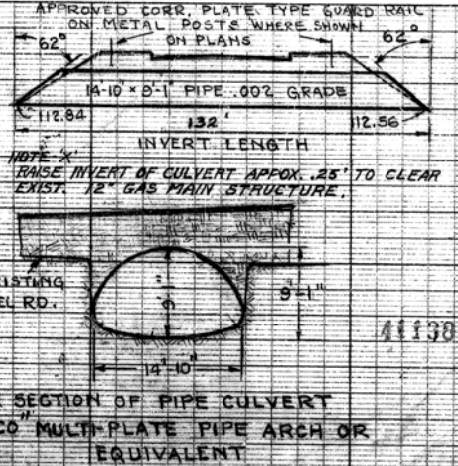 APPROVED CORR. PLATE TYPE GUARD RAIL
ON METAL POSTS WHERE SHOWN
ON PLANS
62°
62°
14'-10" × 9'-1" PIPE .002 GRADE
112.84
132'
112.56
INVERT LENGTH
NOTE-'X'
RAISE INVERT OF CULVERT APPOX. .25' TO CLEAR
EXIST. 12" GAS MAIN STRUCTURE.
ISTING
EL RD.
9'-1"
9'-1"
41138
14'-10"
SECTION OF PIPE CULVERT
CO" MULTI-PLATE PIPE ARCH OR
EQUIVALENT